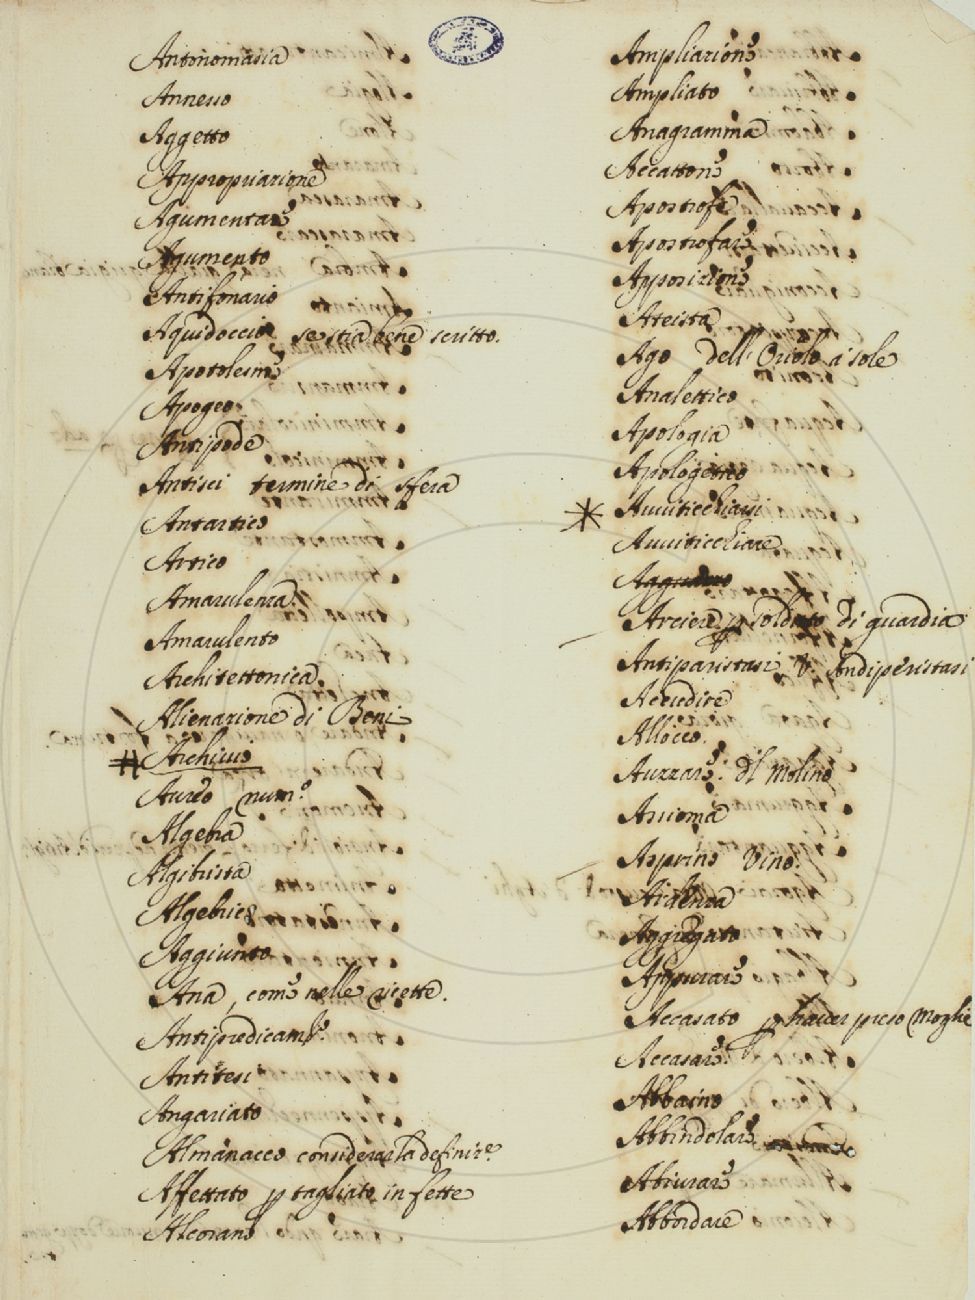 Antonomasia
Annesso
Aggetto
Appropriazione
Agumentare
Agumento
Antifonario
Aquidoccio se stia bene scritto.
Apotolesme
Apogeo
Antipode
Antisci termine di sfera
Antartico
Artico
Amarulenza
Amarulento
Architettonica
Alienazione di Beni
# Archivio
Aureo num.º
Algebra
Algibista
Algebrico
Aggiunto
Ana, come nelle ricette.
Antipredicam.º
Antitesi
Angariato
Almanacco considerar la definiz.e
Affettato p tagliato in fette
Alcorano
Ampliazione
Ampliato
Anagramma
Accattone
Apostrofe
Apostrofare
Apposizione
Ateista
Ago dell'Oriolo a sole
Analettico
Apologia
Apologetico
* Avviticchiarsi
Avviticchiare
Arciere p soldato di guardia
Antiparistasi V. Andiperistasi
Accudire
Allocco.
Auzzare: Il molino
Assioma
Asprino Vino.
Aidenza
Aggregato
Appurare
Accasato p haver preso Moglie
Accasare.
Abbaino
Abbindolare
Abiurare
Abbordare